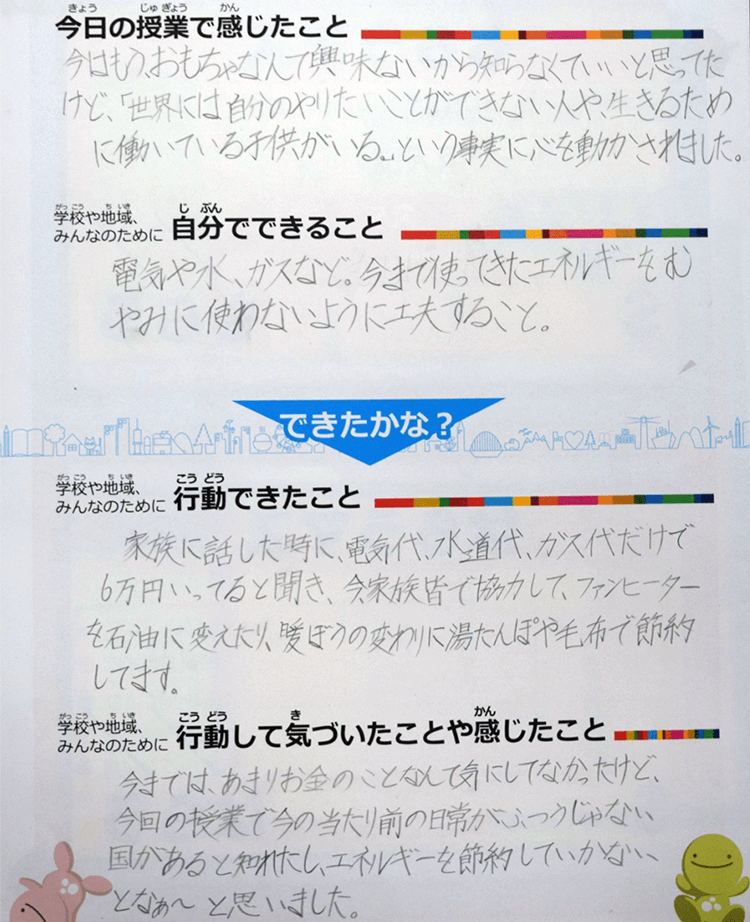 今日の授業で感じたこと
きょう じゅぎょう かん
今はもう、おもちゃなんて興味ないから知らなくていいと思ってた
けど、「世界には自分のやりたいことができない人や、生きるため
に働いている子供がいる。」という事実に心を動かされました。
がっこう ちいき じぶん
学校や地域、
みんなのために 自分でできること
電気や水、ガスなど。今まで使ってきたエネルギーをむ
やみに使わないように工夫すること。
できたかな？
がっこう ちいき こうどう
学校や地域、
みんなのために 行動できたこと
家族に話した時に、電気代、水道代、ガス代だけで
6万円いってると聞き、今、家族皆で協力して、ファンヒーター
を石油に変えたり、暖ぼうの変わりに湯たんぽや毛布で節約
してます。
がっこう ちいき こうどう き かん
学校や地域、
みんなのために 行動して気づいたことや感じたこと
今までは、あまりお金のことなんて気にしてなかったけど、
今回の授業で今の当たり前の日常がふつうじゃない
国があると知れたし、エネルギーを節約していかない、
となぁ〜と思いました。